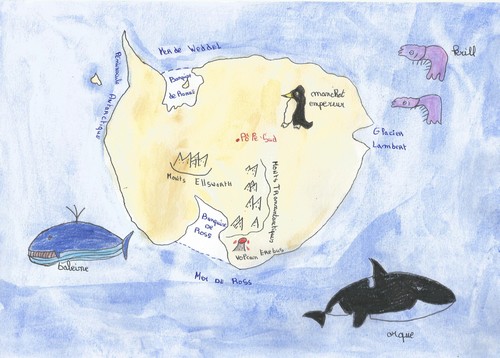 Mer de Weddel
Krill
Péninsule Antarctique
Banquise
de Ronne
manchot
empereur
Glacier
Lambert
Pôle Sud
Monts Ellsworth
Monts Transantarctiques
Banquise
DE
ROSS
Volcan Erebus
baleine
Mer de Ross
orque